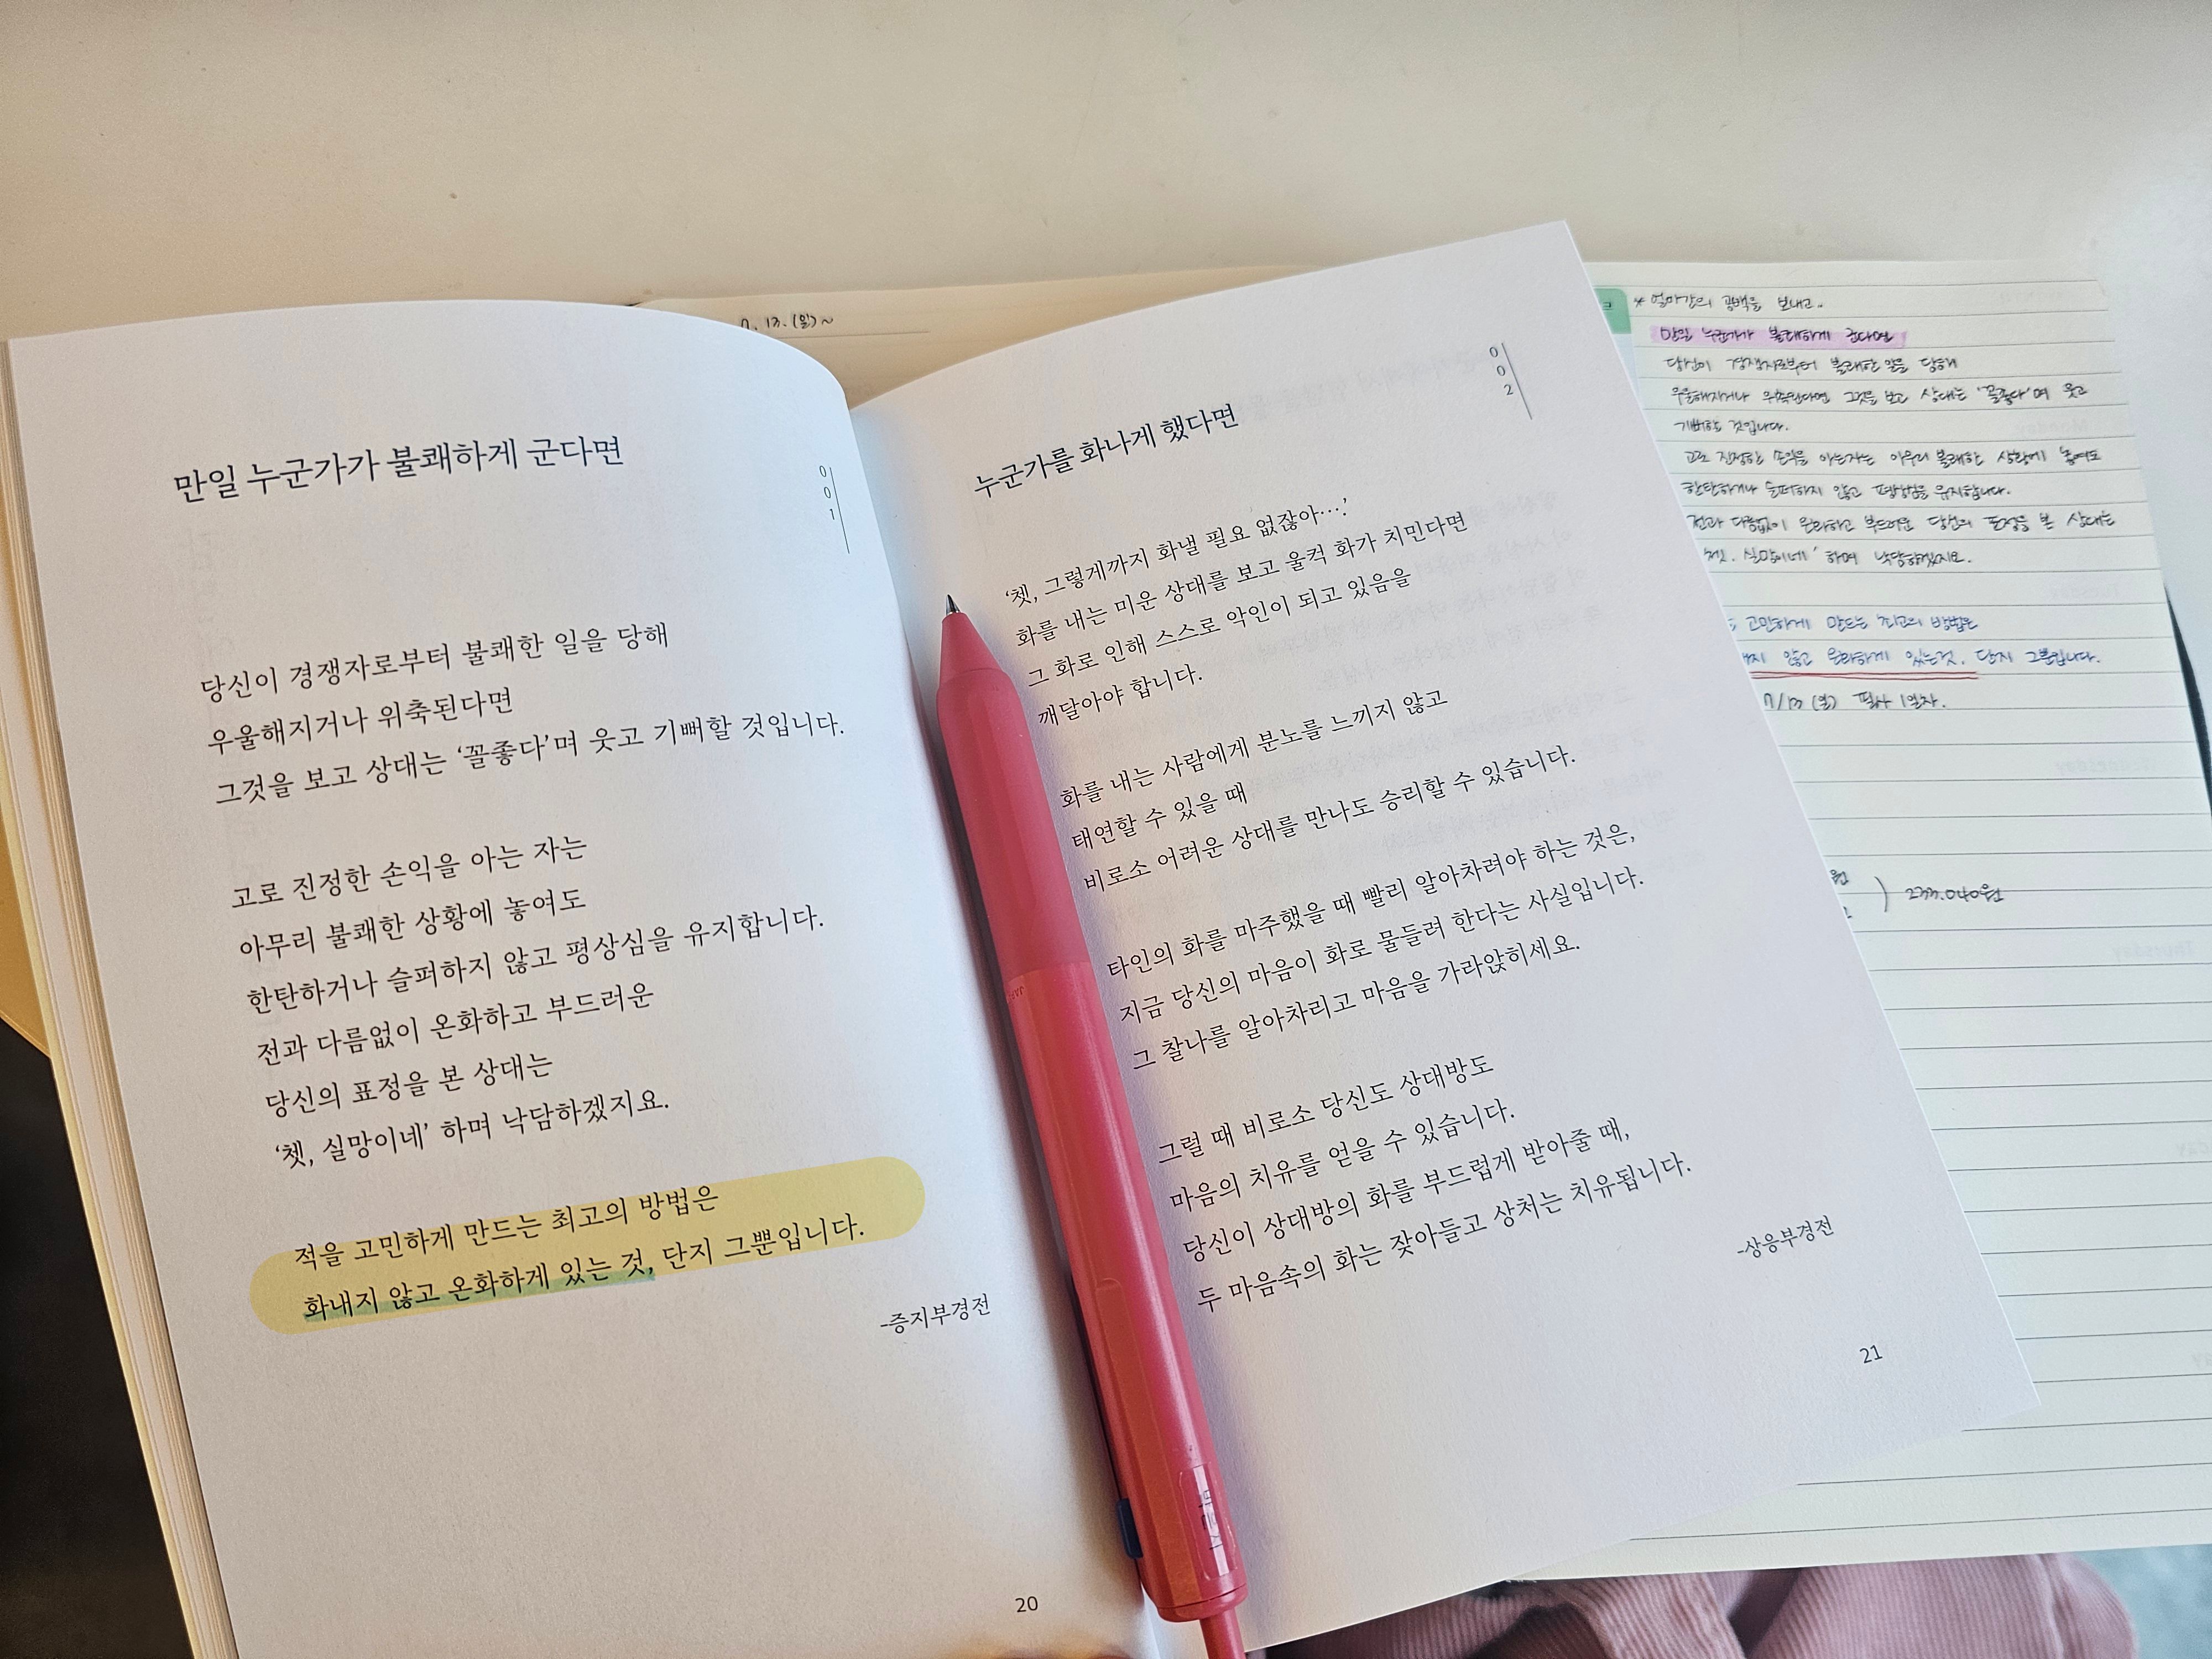 만일 누군가가 불쾌하게 군다면
001
당신이 경쟁자로부터 불쾌한 일을 당해
우울해지거나 위축된다면
그것을 보고 상대는 ‘꼴좋다’며 웃고 기뻐할 것입니다.
고로 진정한 손익을 아는 자는
아무리 불쾌한 상황에 놓여도
한탄하거나 슬퍼하지 않고 평상심을 유지합니다.
전과 다름없이 온화하고 부드러운
당신의 표정을 본 상대는
‘쳇, 실망이네’ 하며 낙담하겠지요.
적을 고민하게 만드는 최고의 방법은
화내지 않고 온화하게 있는 것, 단지 그뿐입니다.
-증지부경전
20
누군가를 화나게 했다면
002
‘쳇, 그렇게까지 화낼 필요 없잖아….’
화를 내는 미운 상대를 보고 울컥 화가 치민다면
그 화로 인해 스스로 악인이 되고 있음을
깨달아야 합니다.
화를 내는 사람에게 분노를 느끼지 않고
태연할 수 있을 때
비로소 어려운 상대를 만나도 승리할 수 있습니다.
타인의 화를 마주했을 때 빨리 알아차려야 하는 것은,
지금 당신의 마음이 화로 물들려 한다는 사실입니다.
그 찰나를 알아차리고 마음을 가라앉히세요.
그럴 때 비로소 당신도 상대방도
마음의 치유를 얻을 수 있습니다.
당신이 상대방의 화를 부드럽게 받아줄 때,
두 마음속의 화는 잦아들고 상처는 치유됩니다.
-상응부경전
21
13.(일)~
* 얼마간의 공백을 보내고..
만일 누군가가 불쾌하게 군다면
당신이 경쟁자로부터 불쾌한 일을 당해
우울해지거나 위축된다면 그것을 보고 상대는 '꼴좋다'며 웃고
기뻐할 것입니다.
고로 진정한 손익을 아는자는 아무리 불쾌한 상황에 놓여도
한탄하거나 슬퍼하지 않고 평상심을 유지합니다.
전과 다름없이 온화하고 부드러운 당신의 표정을 본 상대는
쳇. 실망이네' 하며 낙담하겠지요.
고민하게 만드는 최고의 방법은
않고 온화하게 있는것. 단지 그뿐입니다.
7/13 (일) 필사 1일차.
원
233.040원